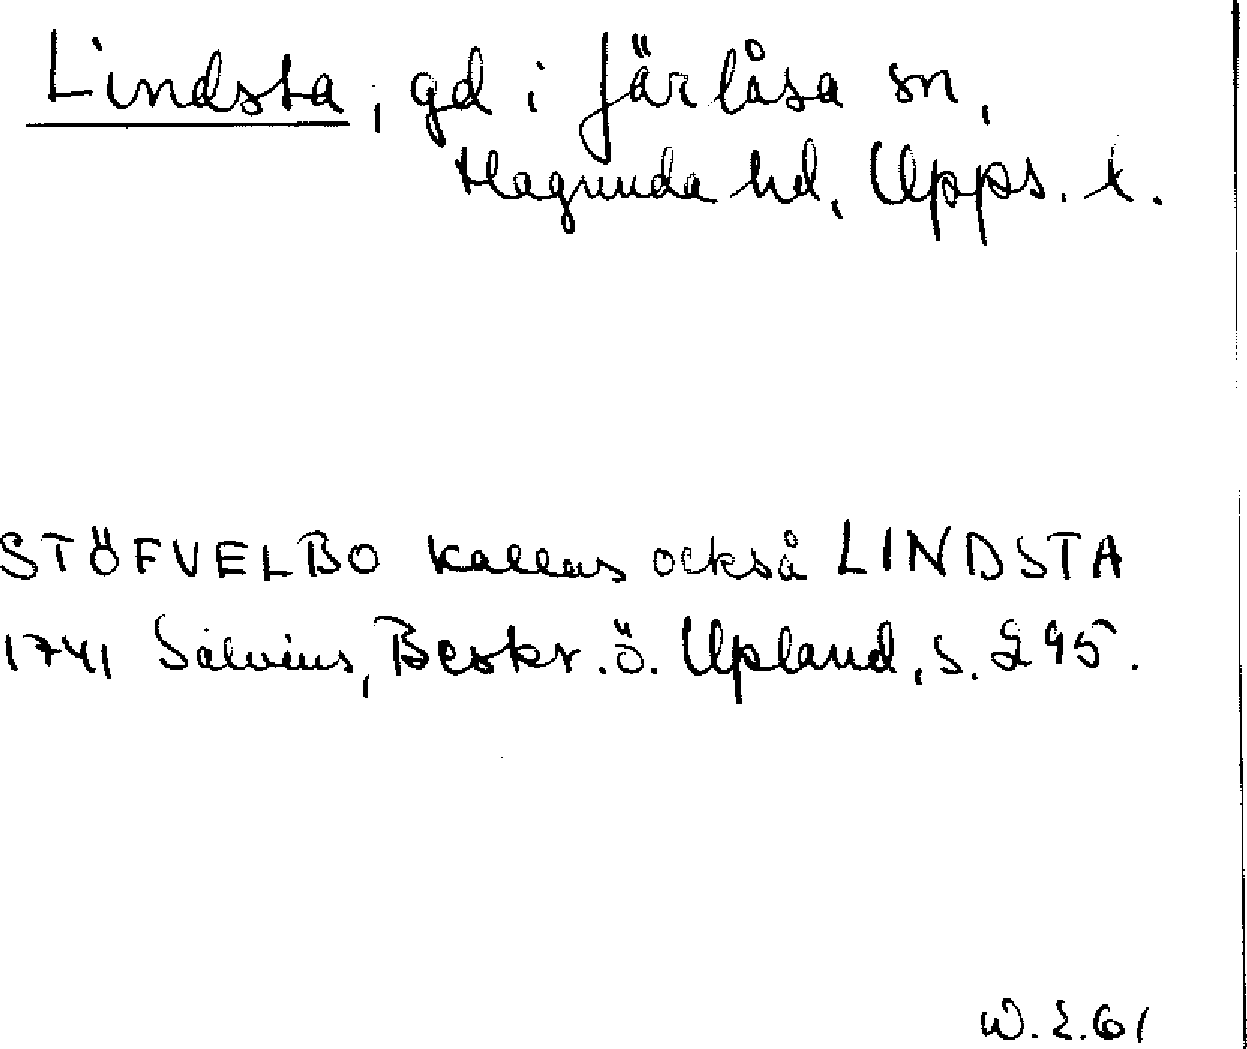 Lindsta, gd i Järlåsa sn,
Hagunda hd, Upps. l.
STÖFVELBO kallas också LINDSTA
1741 Salvius, Beskr. ö. Upland, s. 295.
W. 2.61